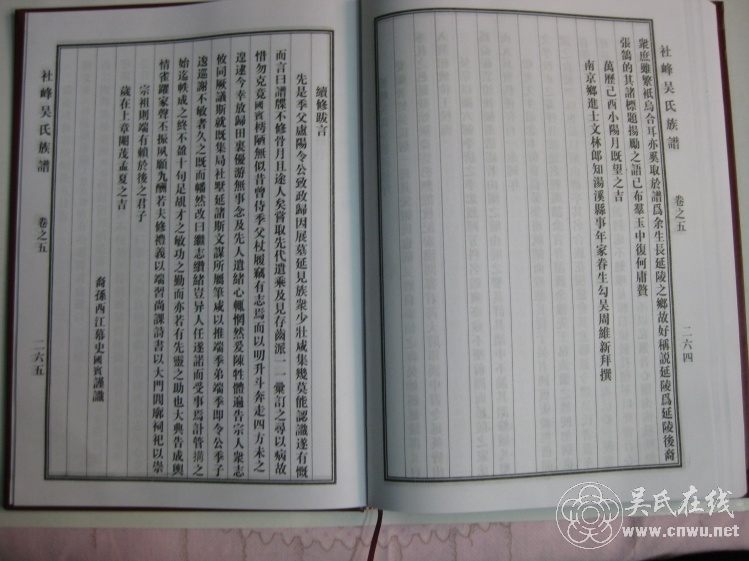 社峰吴氏族譜
卷之五
二六四
衆庶雖繁秖烏合耳亦奚取於譜爲余生長延陵之鄉故好稱説延陵爲延陵後裔
張鵠的其諸標題揚勵之語已布羣玉中復何庸贅
萬曆己酉小陽月既望之吉
南京鄉進士文林郎知湯溪縣事年家眷生勾吴周維新拜撰
續修跋言
先是季父盧陽令公致政歸因展墓延見族衆少壯咸集幾莫能認識遂有慨
而言曰譜牒不修骨月且途人矣嘗取先代遺乘及見存齒派一一彙訂之尋以病故
惜勿克竟國賓樗陋無似昔曾侍季父杖履竊有志焉而以明升斗奔走四方未之
遑逮今幸放歸田裏優游無事念及先人遺緒心輒惘然爰陳牲體遍告宗人衆志
攸同厥議斯就既集局社墅延諸斯文謀所屬筆咸以推端季弟端季即令公季子
逡巡謝不敏者久之既而幡然改曰繼志纘緒豈异人任遂諾而受事焉計管搆之
始迄帙成之終不盈十旬足覘才之敏功之勤而亦若有先靈之助也大典告成輿
情雀躍家聲不振夙願九酬若夫修禮義以端習尚課詩書以大門閭廓祠祀以崇
宗祖則端有賴於後之君子
歲在上章閹茂孟夏之吉
裔孫西江幕史國賓謹識
社峰吴氏族譜
卷之五
二六五
吴氏在线
www.cnwu.net